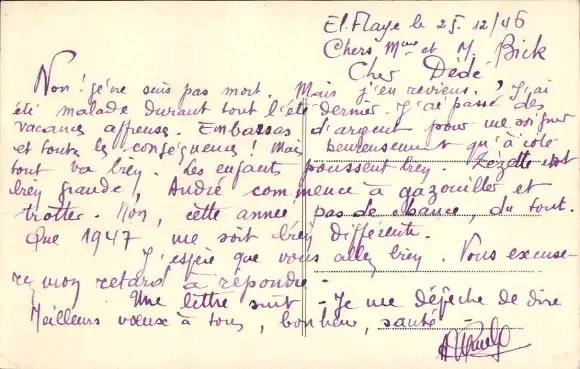 El-Flaye le 25-12/46
Chers Mme et M. Bick
Cher Dédé
Non! je ne suis pas mort. Mais j'en reviens. J'ai
été malade durant tout l'été dernier. J'ai passé des
vacances affreuses. Embarras d'argent pour me soigner
et toutes les conséquences! Mais heureusement qu'à côté
tout va bien. Les enfants poussent bien. Zézette est
bien grande, André commence à gazouiller et
trotter. Non, cette année pas de chance, du tout.
Que 1947 me soit bien différente.
J'espère que vous allez bien. Vous excuse-
rez mon retard à répondre.
Une lettre suit - Je me dépêche de dire
Meilleurs vœux à tous, bonheur, santé -